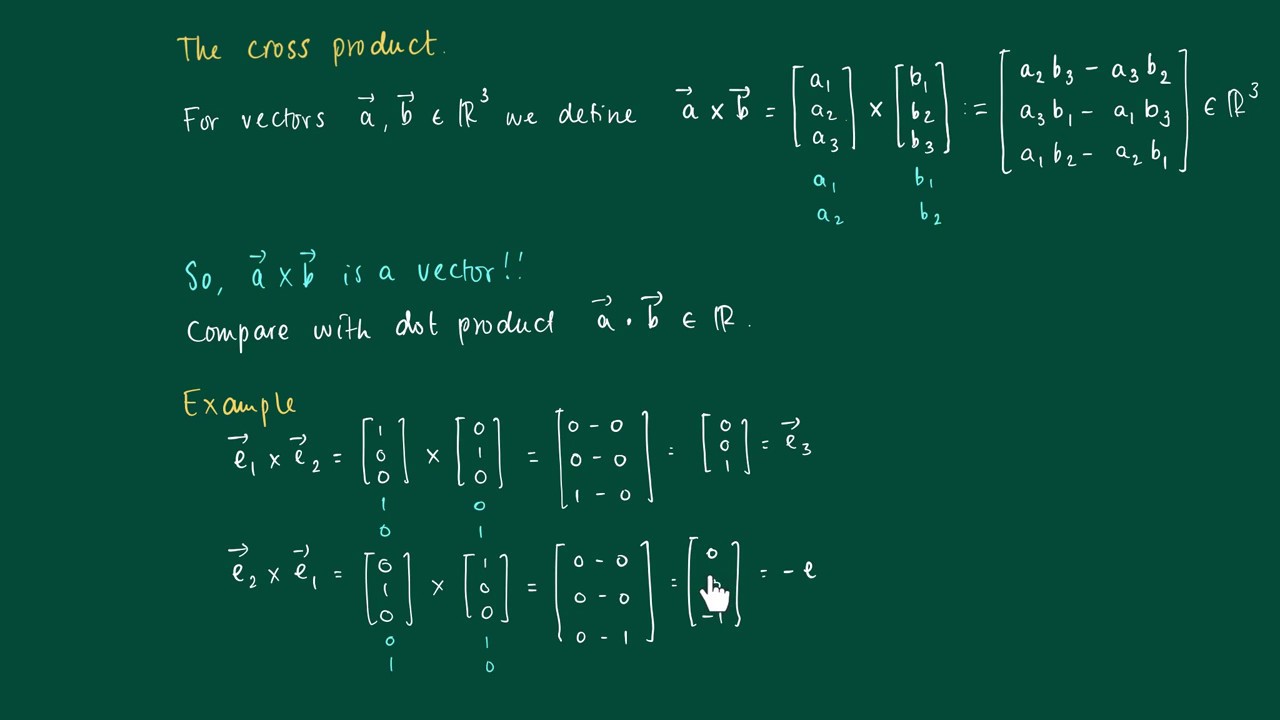 The cross product.
For vectors a⃗, b⃗ ∈ ℝ³ we define a⃗ × b⃗ = [a₁ a₂ a₃] × [b₁ b₂ b₃] := [a₂b₃ − a₃b₂ a₃b₁ − a₁b₃ a₁b₂ − a₂b₁] ∈ ℝ³
a₁ b₁
a₂ b₂
So, a⃗ × b⃗ is a vector!!
Compare with dot product a⃗ · b⃗ ∈ ℝ.
Example
e⃗₁ × e⃗₂ = [1 0 0] × [0 1 0] = [0 − 0 0 − 0 1 − 0] = [0 0 1] = e⃗₃
1 0
0 1
e⃗₂ × e⃗₁ = [0 1 0] × [1 0 0] = [0 − 0 0 − 0 0 − 1] = [0 −1] = − e
0 1
1 0